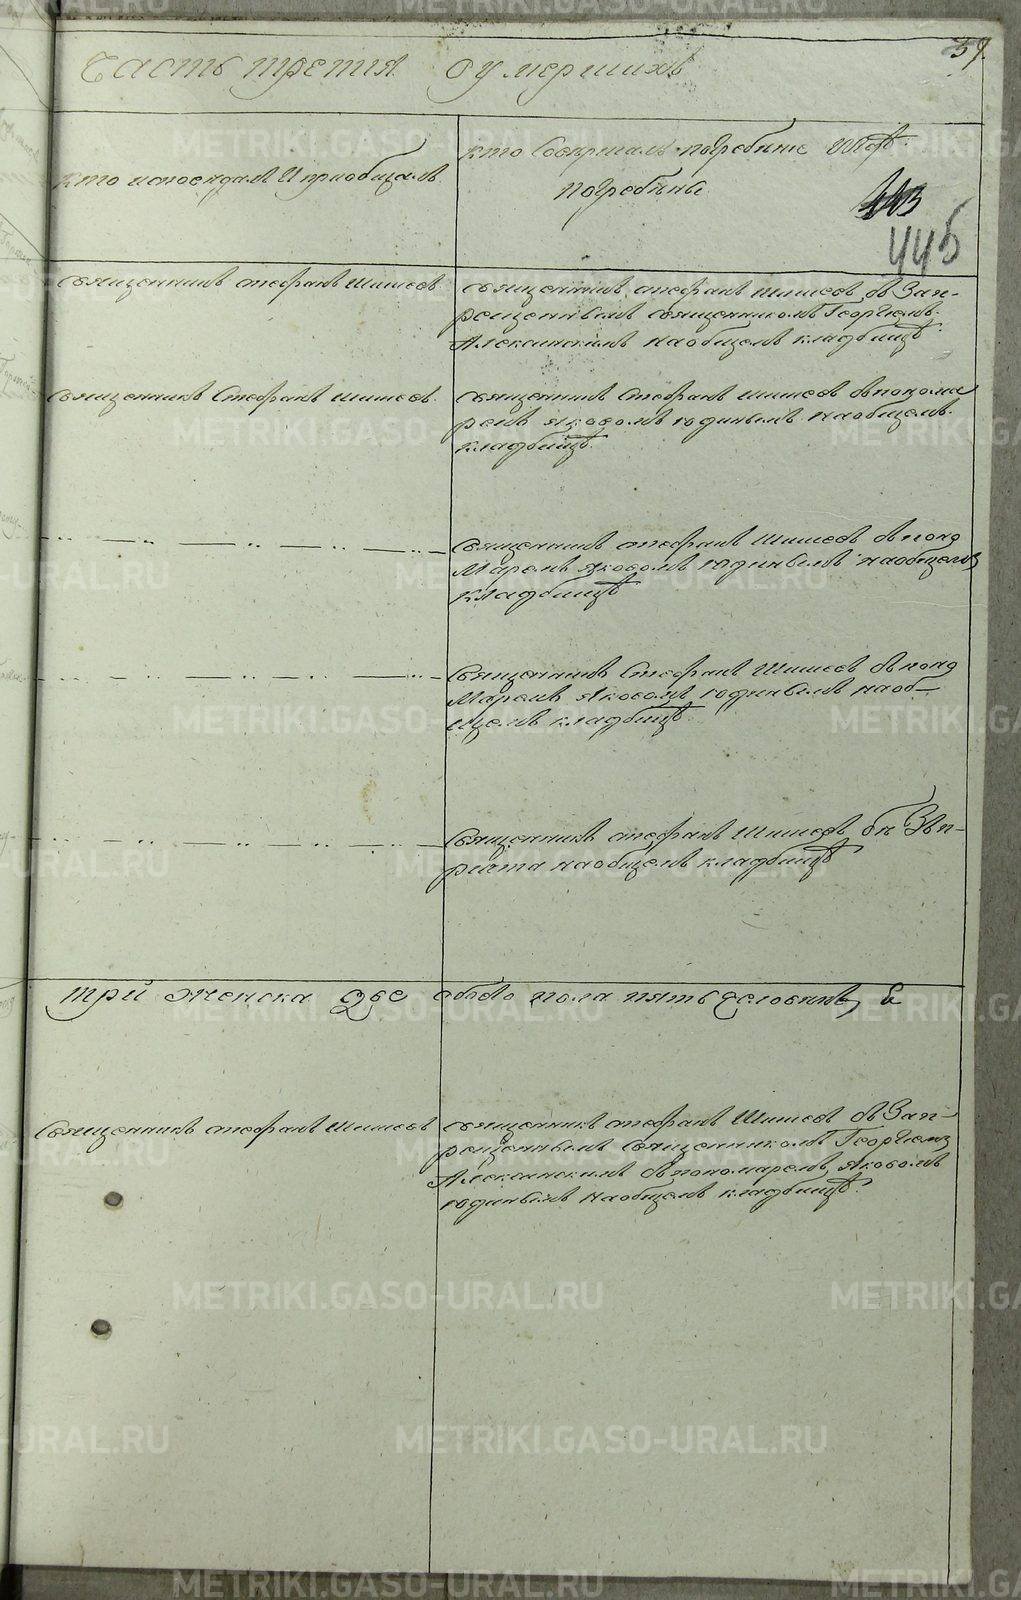 часть третия о умершихъ
кто исповедалъ И приобщалъ
кто Совершалъ погребение И где
погребены
445
священникъ стефанъ Шишевъ
священникъ стефанъ Шишевъ съ Зап-
рещеннымъ священникомъ Георгиемъ
Алексинскимъ на общемъ кладбищѣ
священникъ Стефанъ Шишевъ
священникъ Стефанъ Шишевъ с понома
ремъ Яковомъ юдинымъ на общемъ
кладбищѣ
священникъ стефанъ Шишевъ с поно
Маремъ Яковомъ юдинымъ на общемъ
кладбищѣ
священникъ Стефанъ Шишевъ с поно
Маремъ Яковомъ юдинымъ на об-
щемъ кладбищѣ
священникъ стефанъ Шишевъ
на общемъ кладбищѣ
три женска две обоего пола пять человекъ
священникъ стефанъ Шишевъ
священникъ стефанъ Шишевъ съ Зап-
рещеннымъ священникомъ Георгиемъ
Алексинскимъ с пономаремъ Яковомъ
юдинымъ на общемъ кладбищѣ
METRIKI.GASO-URAL.RU